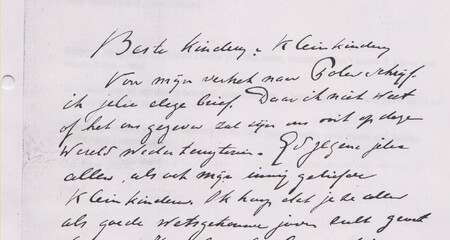 Beste kinderen & Kleinkinderen
Voor mijn vertrek naar Polen schrijf
ik jelie deze brief. Daar ik niet weet
of het ons gegeven zal zijn ons ooit op deze
wereld weder terug te zien. God zegene jelie
allen, als ook mijn innig geliefde
Kleinkinderen. Ik hoop dat je de allen
als goede wetsgetrouwe joden zult